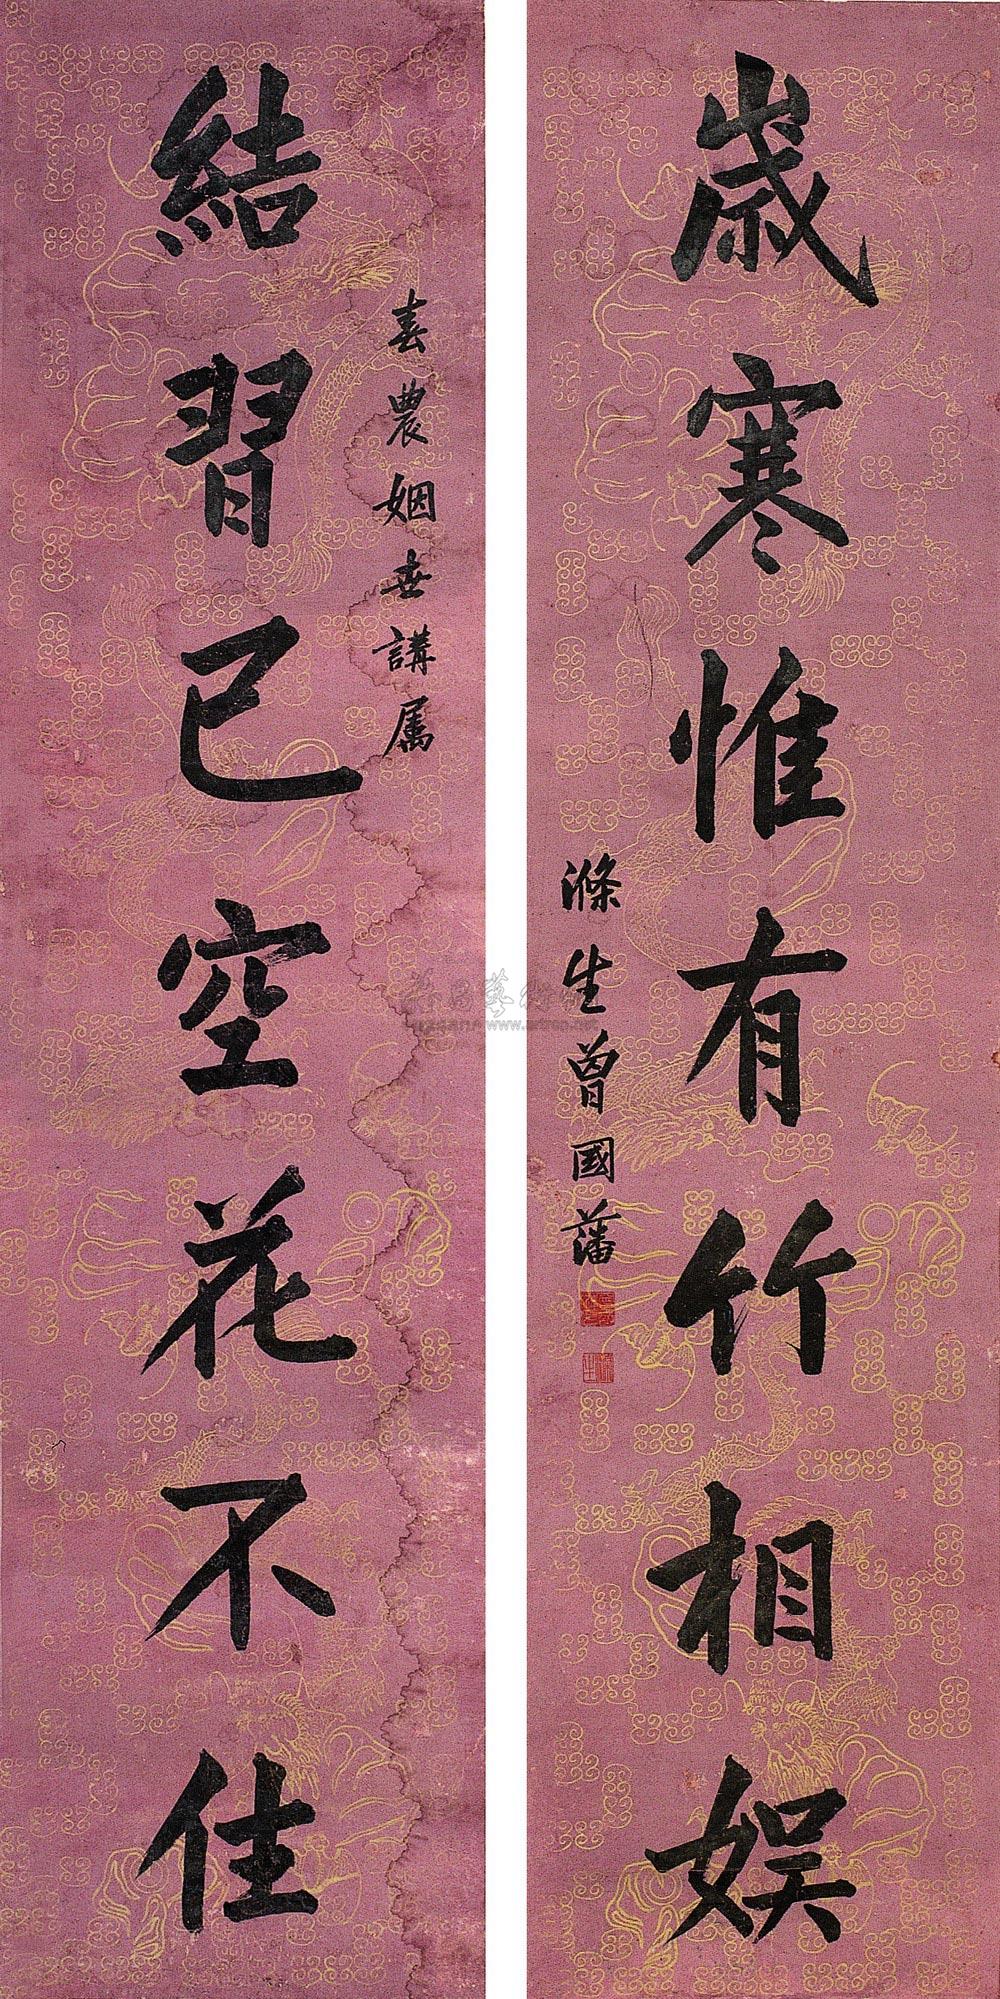 春農姻世講属
結習已空花不住
歲寒惟有竹相娛
滌生曾國藩
www.artron.net